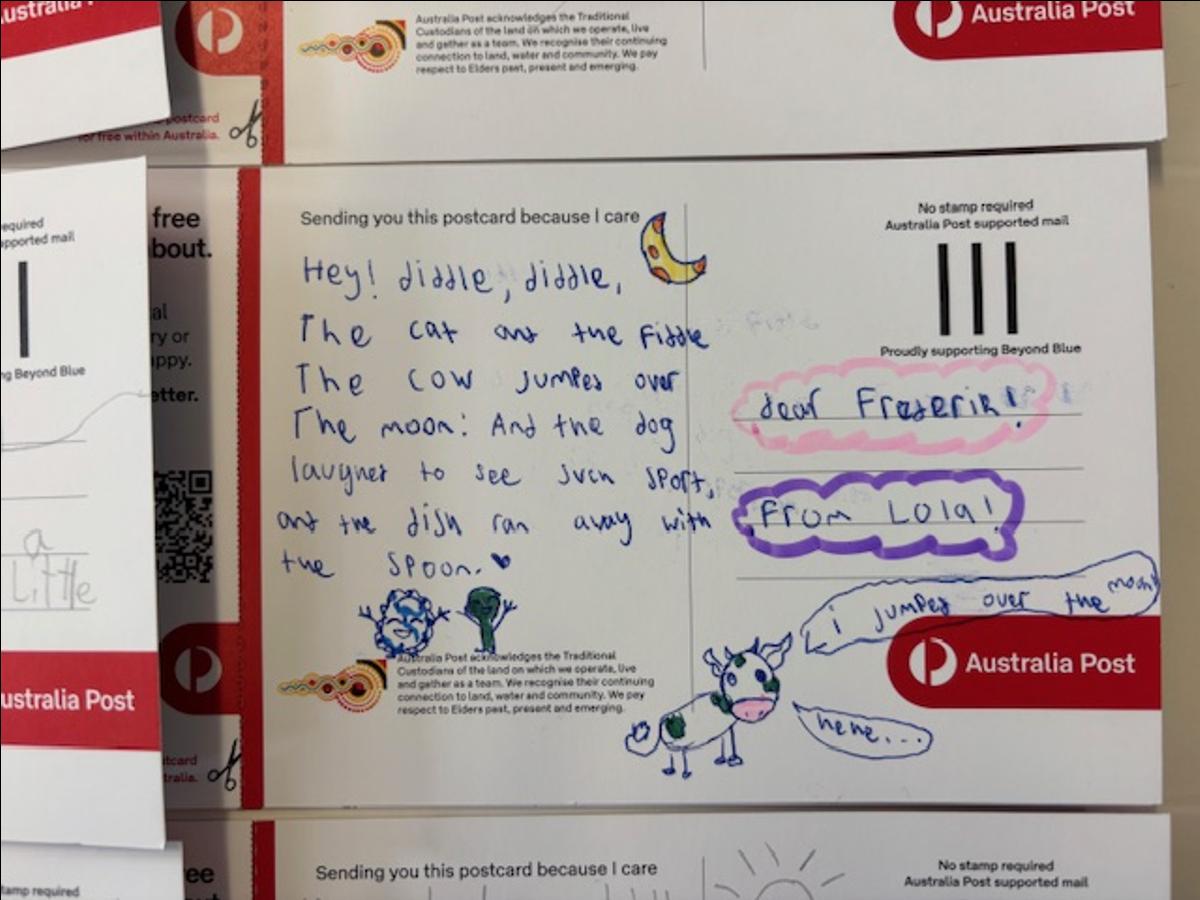 ustralia
Australia Post acknowledges the Traditional
Custodians of the land on which we operate, live
and gather as a team. We recognise their continuing
connection to land, water and community. We pay
respect to Elders past, present and emerging.
Australia Post
postcard
for free within Australia.
equired
pported mail
ng Beyond Blue
a
Little
ustralia Post
tamp required
free
bout.
al
ry or
appy.
etter.
tcard
tralia.
Sending you this postcard because I care
Hey! diddle, diddle,
The cat and the Fiddle
The cow jumped over
The moon: And the dog
laughed to see such sport,
and the dish ran away with
the spoon.
No stamp required
Australia Post supported mail
Proudly supporting Beyond Blue
dear Frederik!
From Lola!
i jumped over the moon!
hehe...
Australia Post acknowledges the Traditional
Custodians of the land on which we operate, live
and gather as a team. We recognise their continuing
connection to land, water and community. We pay
respect to Elders past, present and emerging.
Australia Post
ee
Sending you this postcard because I care
No stamp required
Australia Post supported mail